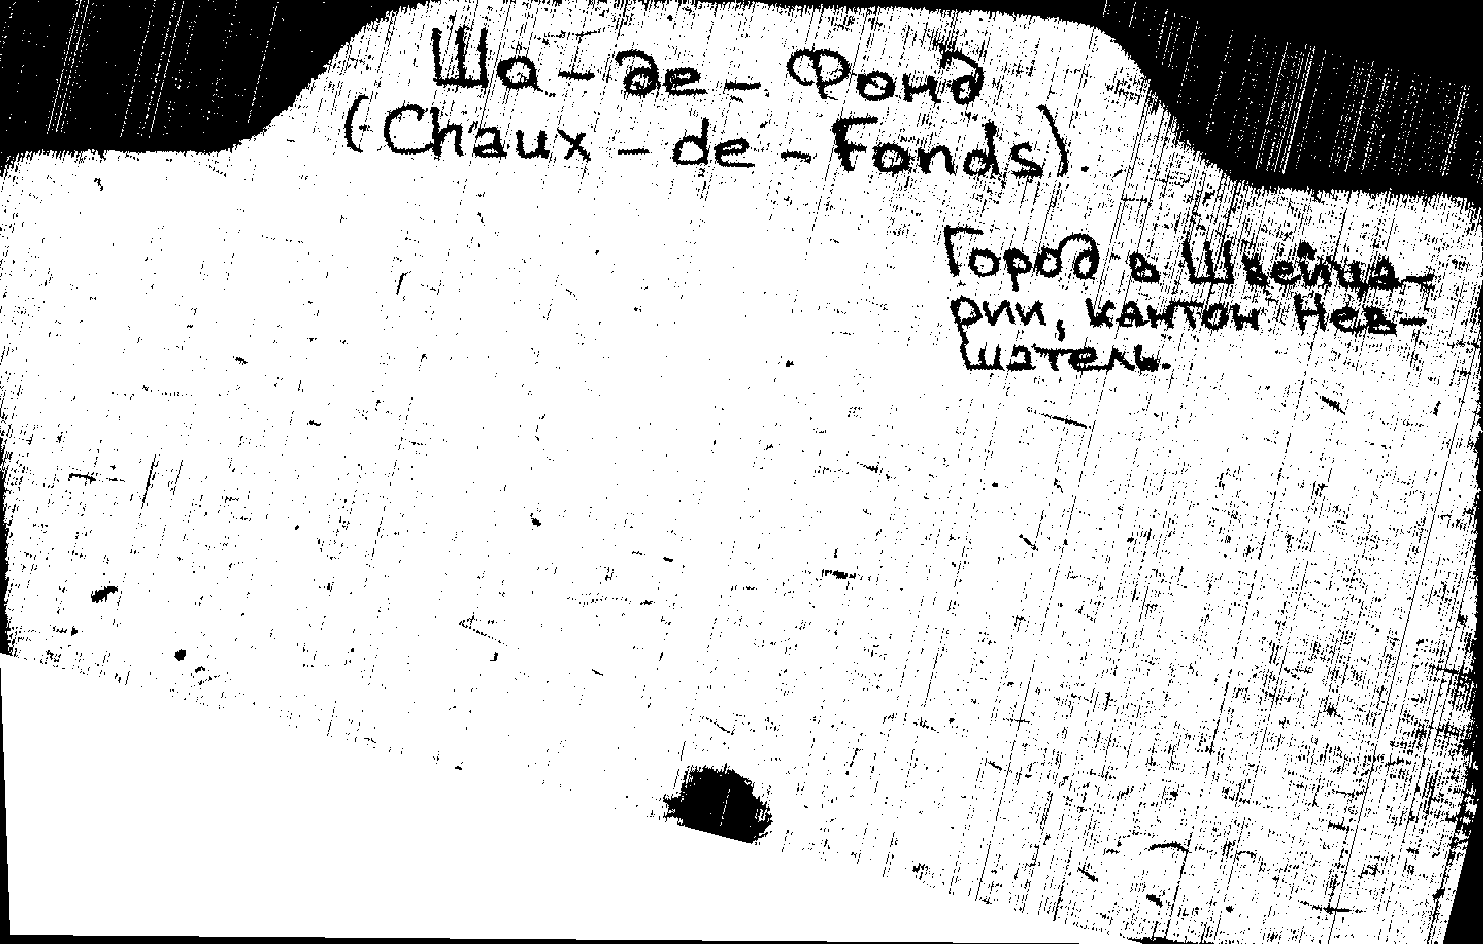 Ша-де-Фонд
(Chaux-de-Fonds).
Город в Швейца-
рии, кантон Нев-
шатель.